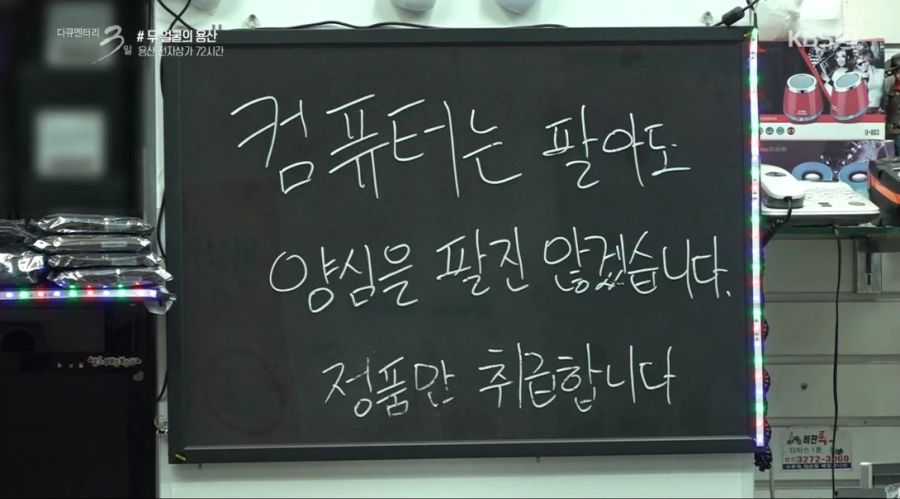 다큐멘터리
3일
# 두 얼굴의 용산
용산 전자상가 72시간
KBS2
컴퓨터는 팔아도
양심을 팔진 않겠습니다.
정품만 취급합니다
U-803
3272-3060